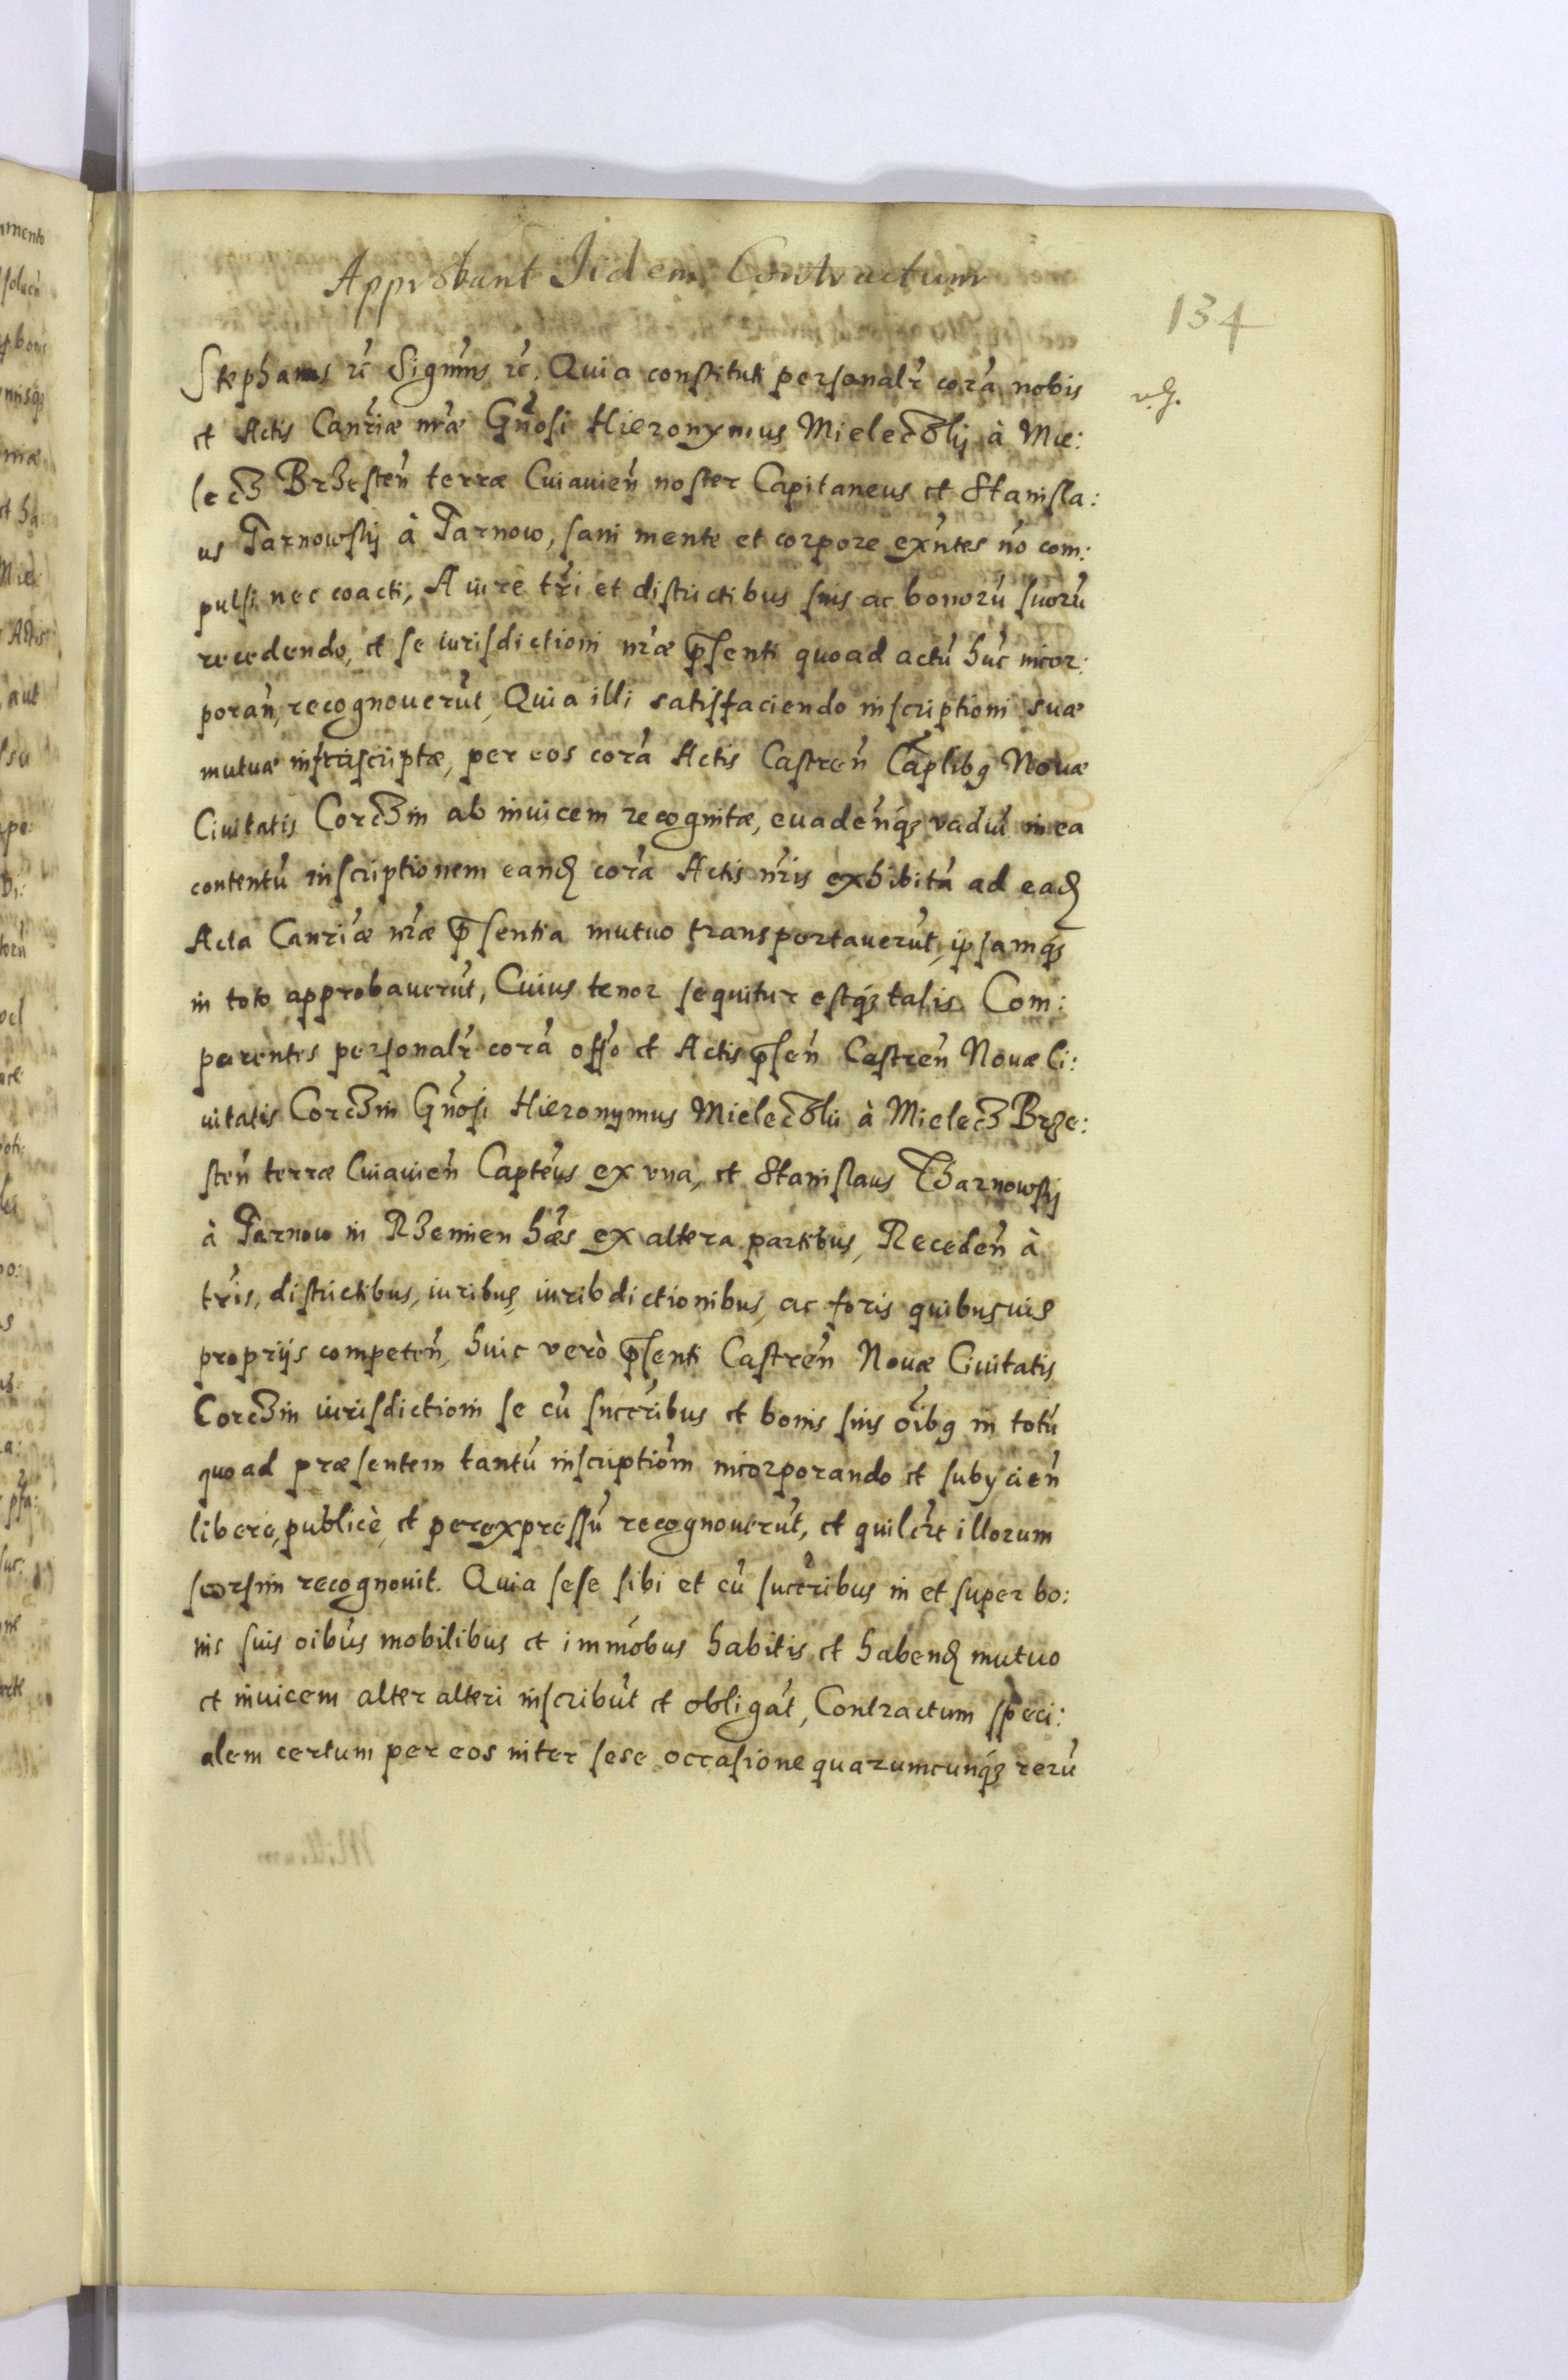 Approbant Iidem Contractum
134
Stephanus etc̃ Significamus etc̃. Quia constituti personalr̃ corã nobis
et Actis Canrĩæ nræ̃ Gñosi Hieronymus Mieleczkij à Mie:
lecz Brzesteñ terræ Cuiauieñ noster Capitaneus et Stanisla:
us Tarnowskij à Tarnow, sani mente et corpore exñtes nõ com:
pulsi nec coacti, A iure trĩ et districtibus suis ac bonorũ suorũ
recedendo, et se iurisdictioni nræ̃ p̃senti quoad actũ hũc incor:
porañ, recognouerũt, Quia illi satisfaciendo inscriptioni suæ
mutuæ infrascriptæ, per eos corã Actis Castreñ Cap̃libg Nouæ
Ciuitatis Corczin ab inuicem recognitæ, euadeñqz vadiũ in ea
contentũ inscriptionem eand̃ corã Actis nr̃is exhibitã ad ead̃
Acta Canrĩæ nræ̃ p̃sentia mutuo transportauerũt, ipsamqz
in toto approbauerũt, Cuius tenor sequitur estqz talis. Com:
parentes personalr̃ corã offo̊ et Actis p̃señ Castreñ Nouæ Ci:
uitatis Corczin Gñosi Hieronymus Mieleczkii à Mielecz Brze:
steñ terræ Cuiauieñ Captẽus ex vna, et Stanislaus Tharnowskij
à Tarnow in Rzemien hæ̃s ex altera partibus, Recedeñ à
trĩs, districtibus, iuribus, iuribdictionibus, ac foris quibusuis
proprijs competeñ, huic verò p̃senti Castreñ Nouæ Ciuitatis
Corczin iurisdictioni se cũ succr̃ibus et bonis suis oĩbg in totũ
quoad præsentem tantũ inscriptiõm incorporando et subycieñ
liberè, publicè, et per expressũ recognouerũt, et quilibt̃ illorum
seorsim recognouit. Quia sese sibi et cũ succr̃ibus in et super bo:
nis suis oibũs mobilibus et immõbus habitis et habend̃ mutuo
et inuicem alter alteri inscribũt et obligãt, Contractum speci:
alem certum per eos inter sese occasione quarumcunqz rerũ